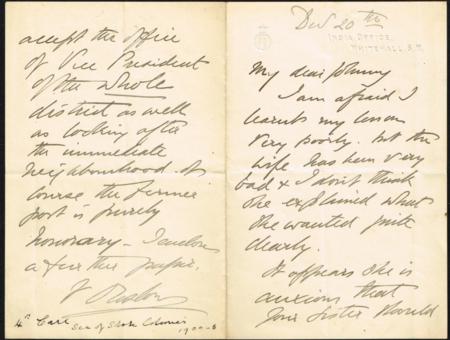 Dec 20th
INDIA OFFICE,
WHITEHALL, S.W.
My dear Johnny
I am afraid I
learnt my lesson
very poorly. but the
wife has been very
bad & I don't think
she explained what
she wanted quite
clearly.
It appears she is
anxious that
your sister should
accept the office
of Vice President
of the whole
district as well
as looking after
the immediate
neighbourhood. Of
course the former
post is purely
honorary - I enclose
a further paper.
4th Earl
Sec of State Colonies